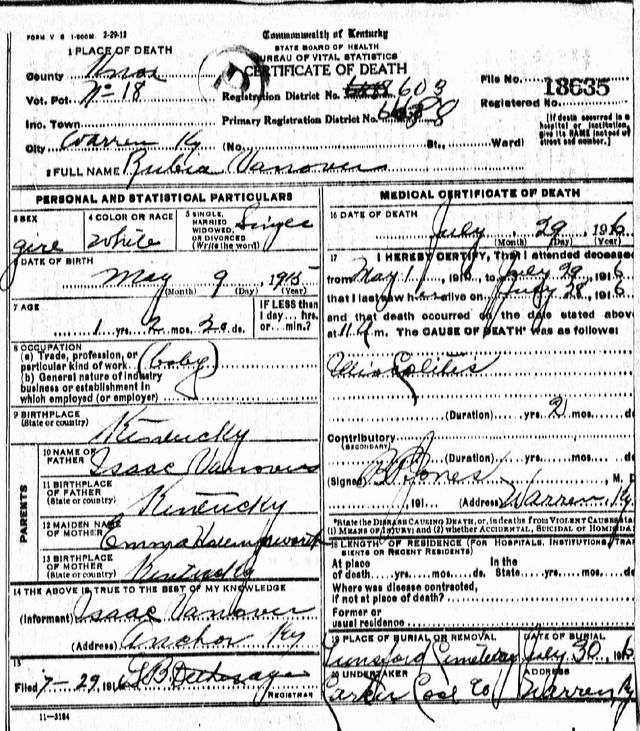 FORM V S 1-500M. 2-29-12
Commonwealth of Kentucky
STATE BOARD OF HEALTH
BUREAU OF VITAL STATISTICS
CERTIFICATE OF DEATH
1 PLACE OF DEATH
County Knox
Vot. Pct. No 18
Inc. Town
City Warren Ky (No. St., Ward)
Registration District No. 603
Primary Registration District No.
File No. 18635
Registered No.
[If death occurred in a hospital or institution, give its NAME instead of street and number.]
2 FULL NAME Rubia Vanover
PERSONAL AND STATISTICAL PARTICULARS
3 SEX
girl
4 COLOR OR RACE
White
5 SINGLE, MARRIED WIDOWED, OR DIVORCED (Write the word)
Single
6 DATE OF BIRTH
May 9 1915
(Month) (Day) (Year)
7 AGE
1 yrs. 2 mos. 20 ds.
IF LESS than 1 day... hrs. or... min.?
8 OCCUPATION
(a) Trade, profession, or
particular kind of work (baby)
(b) General nature of industry
business or establishment in
which employed (or employer)
9 BIRTHPLACE
(State or country)
Kentucky
PARENTS
10 NAME OF FATHER
Isaac Vanover
11 BIRTHPLACE OF FATHER (State or country)
Kentucky
12 MAIDEN NAME OF MOTHER
Emma
13 BIRTHPLACE OF MOTHER (State or country)
Kentucky
14 THE ABOVE IS TRUE TO THE BEST OF MY KNOWLEDGE
(Informant) Isaac Vanover
(Address) Anchor Ky
15
Filed 7-29 191
REGISTRAR
11-3184
MEDICAL CERTIFICATE OF DEATH
16 DATE OF DEATH
July 29 1916
(Month) (Day) (Year)
17 I HEREBY CERTIFY, That I attended deceased
from May 1, 1916, to July 29 1916
that I last saw her alive on July 28 1916
and that death occurred on the date stated above
at 11 a.m. The CAUSE OF DEATH* was as follows:
Colitis
(Duration) yrs. 2 mos. d
Contributory
(SECONDARY)
(Duration) yrs. mos. d
(Signed) Jones M. D
, 191 (Address) Warren, Ky
*State the DISEASE CAUSING DEATH, or, in deaths from VIOLENT CAUSES sta
(1) MEANS OF INJURY; and (2) whether ACCIDENTAL, SUICIDAL or HOMICIDAL
18 LENGTH OF RESIDENCE (FOR HOSPITALS, INSTITUTIONS, TRAN
SIENTS OR RECENT RESIDENTS)
At place of death yrs. mos. ds. In the State yrs. mos. d
Where was disease contracted,
if not at place of death?
Former or
usual residence
19 PLACE OF BURIAL OR REMOVAL
Lunsford Cemetery
DATE OF BURIAL
July 30 1916
20 UNDERTAKER
Coal Co
ADDRESS
Warren, Ky